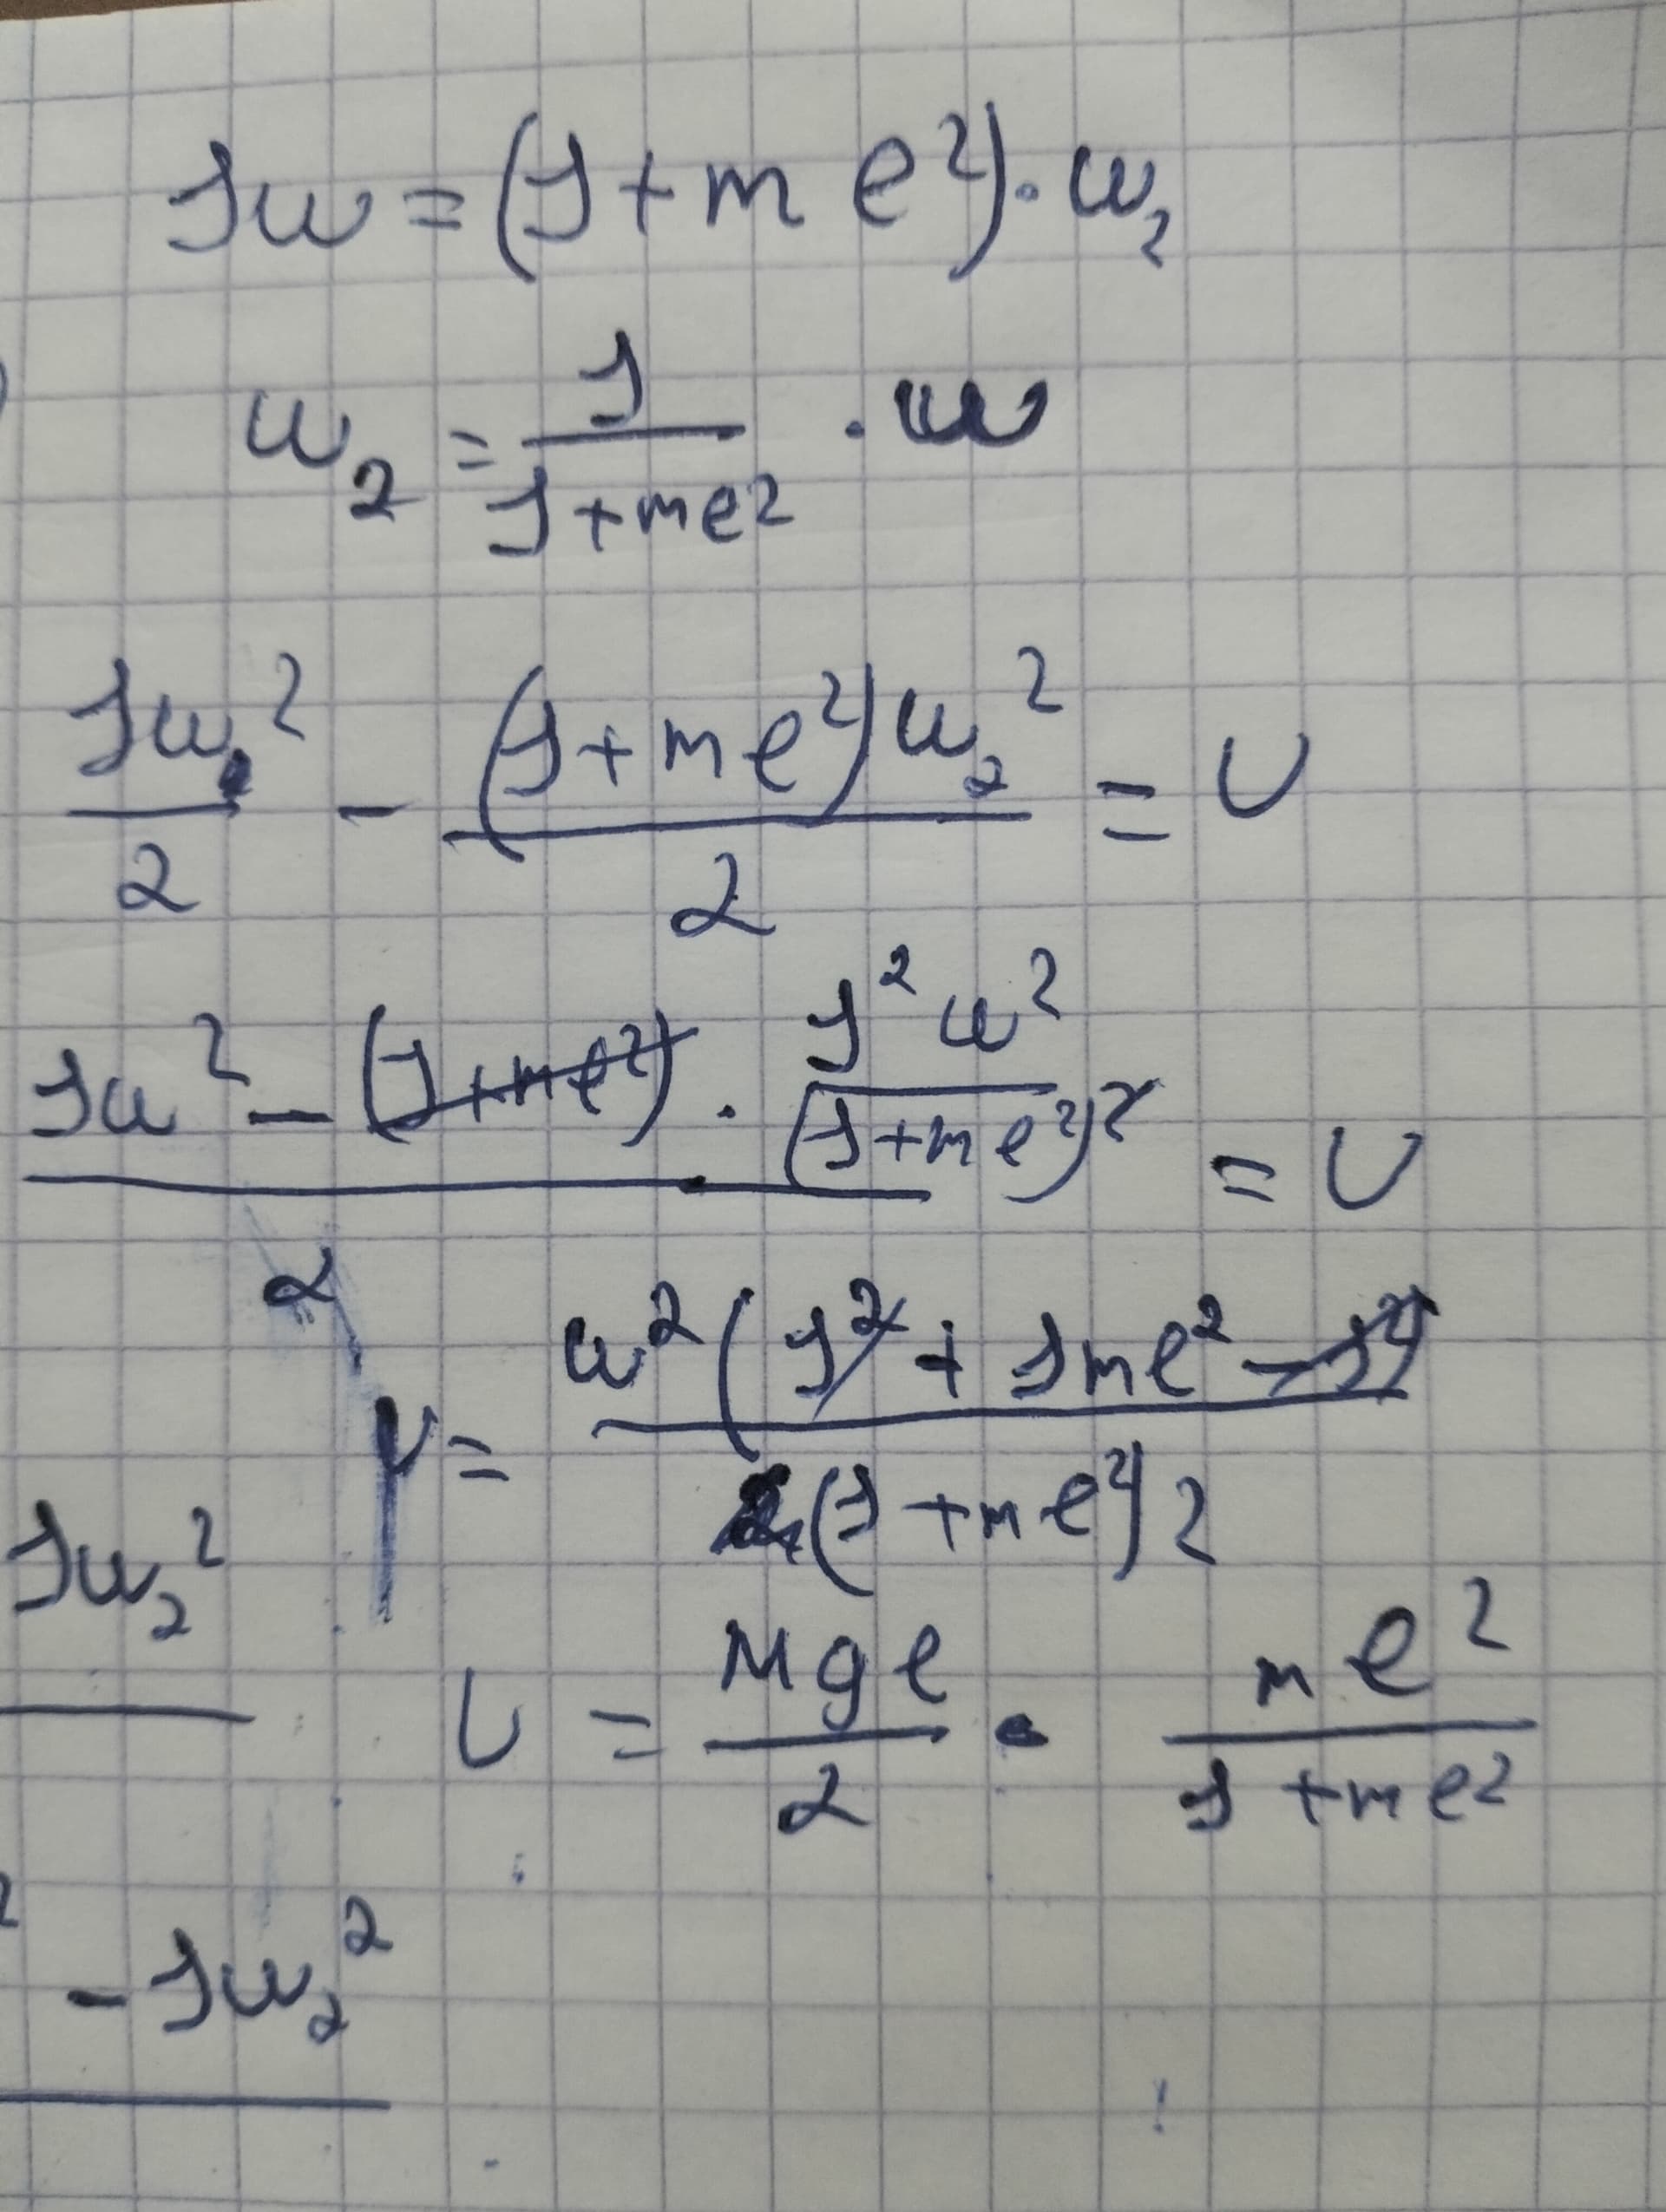 Jω = (J + m e²) · ω₂
ω₂ = J / (J + me²) · ω
Jω² / 2 − (J + me²)ω₂² / 2 = U
(Jω² − (J + me²) · J²ω² / (J + me²)²) / 2 = U
U = ω²(J² + Jme² − J²) / 2(J + me²)2
Jω₂²
U = Mge / 2 · me² / (J + me²)
2
− Jω₂²